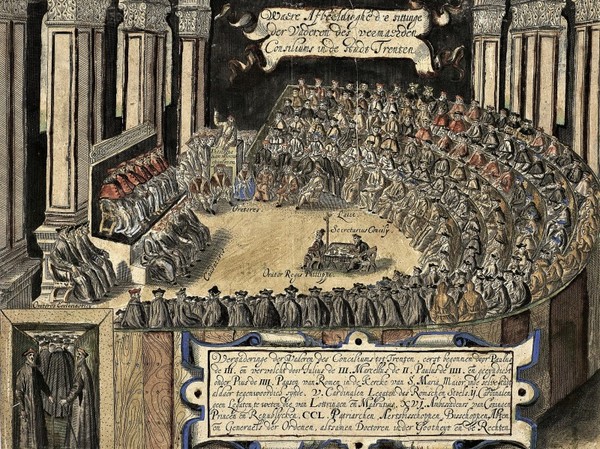 Waere Afbeeldinghe der sittinge
der Vaderen des vermaerden
Consiliums in de stadt Trenten.
Oratores.
Laici
Secretarius Concilij.
Orator Regis Philippi.
Vergaderinge der Vaderen des Conciliums tot Trenten, eerst begonnen door Paulus
de III. en vervolcht door Iulius de III. Marcellus de II. Paulus de IIII. en eyntlicht
onder Pius de IIII. Pausen van Romen, in de Kercke van S. Maria Maior, inde selve stadt
aldaer tegenwoordich synde, V. Cardinalen Legaten des Romschen Stoels, ij Cardinalen
geen Legaten, te weeten, van Lottringen en Madrutius, XVI. Ambassateurs van Coningen
Princen en Republycken, CCL. Patriarchen Aertsbisschoppen, Bisschoppen, Abten
en Generaels der Ordenen, altsamen Doctoren in der Godtheyt en de Rechten